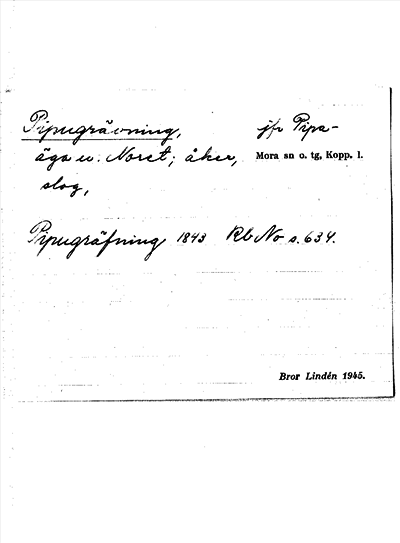 Pipugrävning, jfr Pipa-
äga u. Noret; åker, Mora sn o. tg, Kopp. l.
slog,
Pipugräfning 1843 Rb No s. 634.
Bror Lindén 1945.